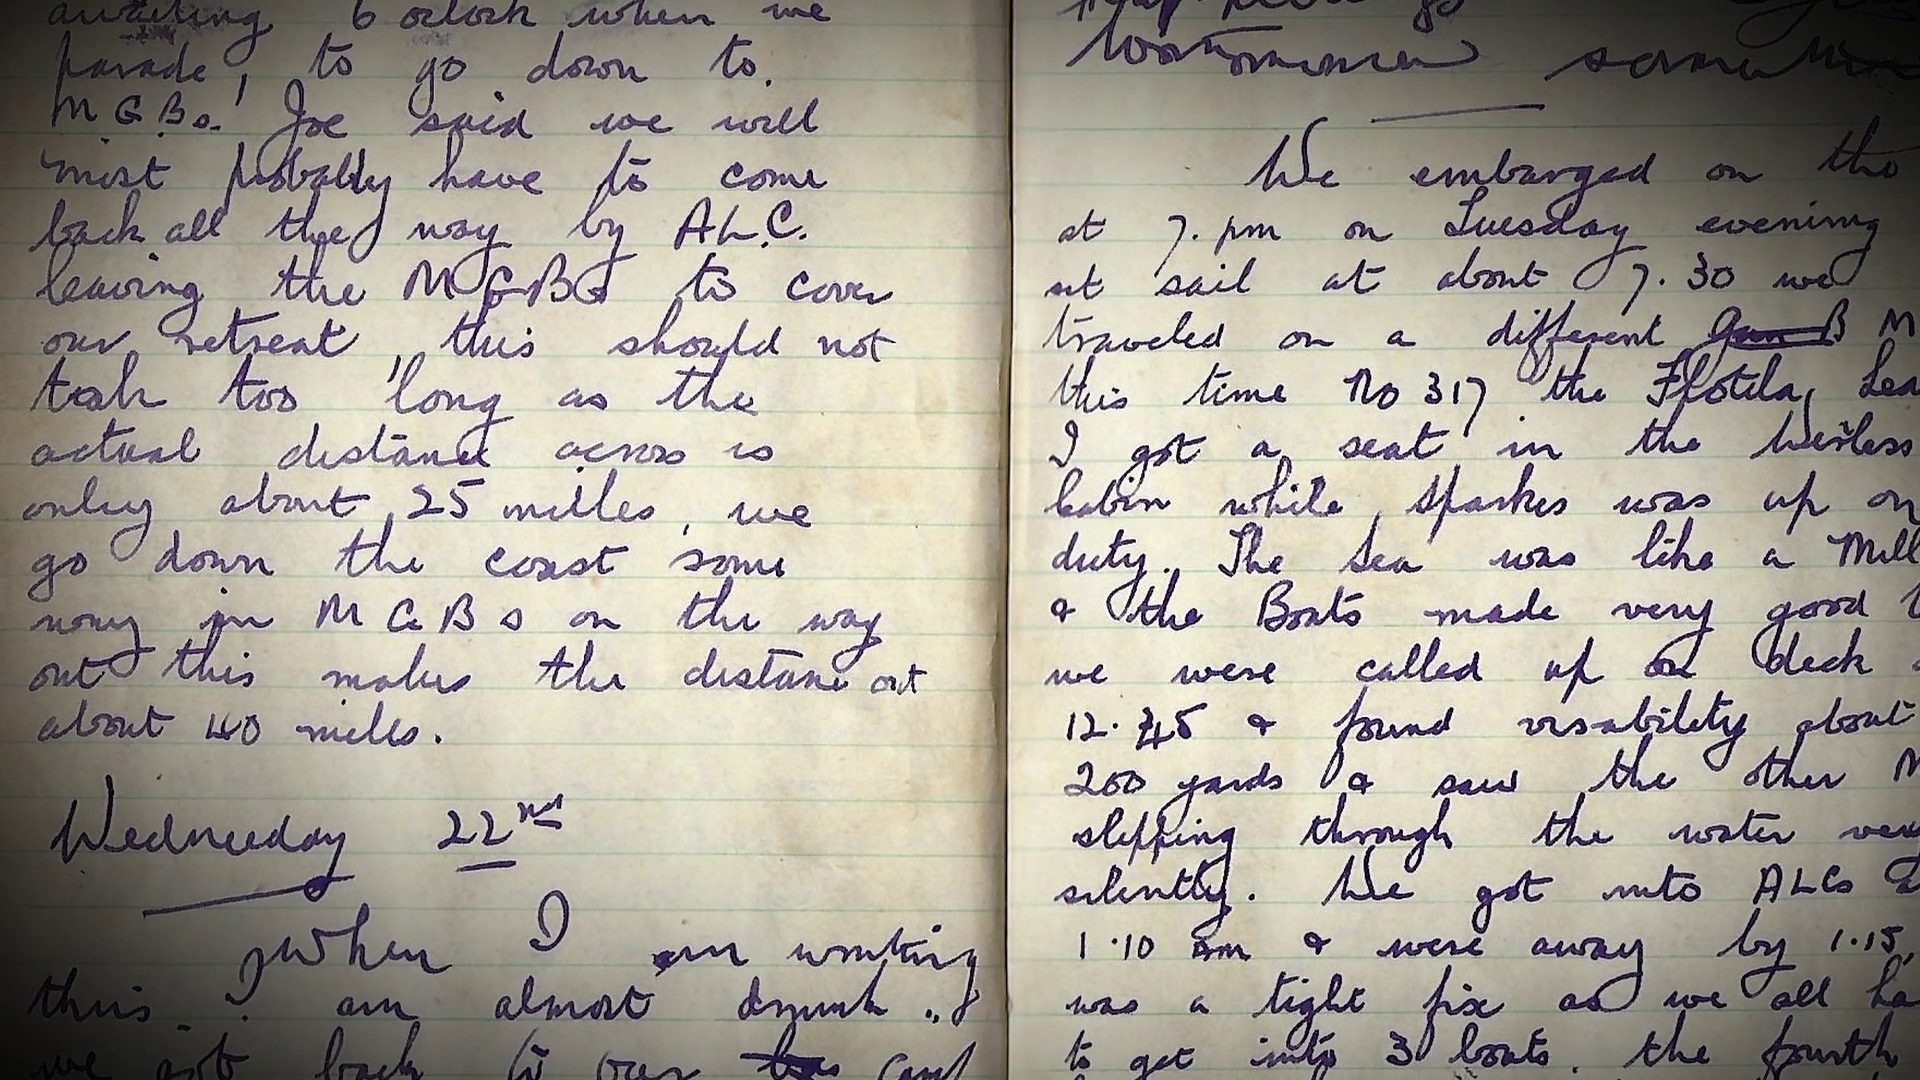 awaiting 6 oclock when we
parade, to go down to.
M G Bs. Joe said we will
most probably have to come
back all the way by A.L.C.
leaving the M G Bs to cover
our retreat, this should not
tak too long as the
actual distance across is
only about 25 milles, we
go down the coast some
way in M G B s on the way
out this makes the distance out
about 40 mills.
Wednesday 22nd
When I am writing
this I am almost drunk. I
we got back to our
We embarged on the
at 7. pm on Tuesday evening
set sail at about 7.30 we
traveled on a different B M
this time No 317 the Flotila, Lea
I got a seat in the Wirless
Cabin while Sparkes was up on
duty. The Sea was like a Mill
& the Boats made very good
we were called up on deck
12.45 & found visability about
200 yards & saw the other M
slepping through the water very
silently. We got into ALCs
1.10 am & were away by 1.15,
was a tight fix as we all ha
to get into 3 boats, the fourth